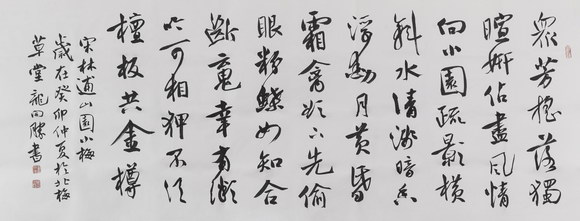 衆芳搖落獨
暄妍佔盡風情
向小園疏影橫
斜水清淺暗香
浮動月黃昏
霜禽欲下先偷
眼粉蝶如知合
斷魂幸有微
吟可相狎不須
檀板共金樽
宋林逋山園小梅
歲在癸卯仲夏於北梅
草堂龍向勝書